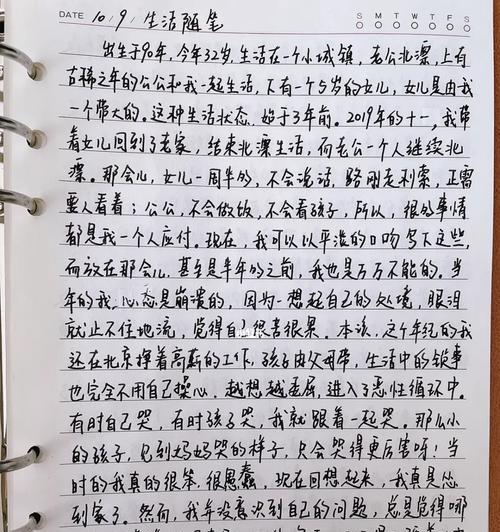 DATE 10/9/生活随笔 S M T W T F S
出生于90年,今年32岁,生活在一个小城镇,老公北漂,上有
古稀之年的公公和我一起生活,下有一个5岁的女儿,女儿是由我
一个带大的。这种生活状态,始于3年前。2019年的十一,我带
着女儿回到了老家,结束北漂生活,而老公一个人继续北
漂。那会儿,女儿一周半的,不会说话,路刚走利索,正需
要人看着;公公,不会做饭,不会看孩子,所以,很多事情
都是我一个人应付。现在,我可以以平淡的口吻写下这些,
而放在那会儿,甚至是半年多之前,我也是万万不能的。当
年的我,心态是崩溃的,因为一想起自己的处境,眼泪
就止不住地流,觉得自己很苦很累。本该,这个年纪的我
还在北京挣着高薪的工作,孩子由父母带,生活中的琐事
也完全不用自己操心。越想越委屈,进入了恶性循环中。
有时自己哭,有时孩子哭,我就跟着一起哭。那么小
的孩子,见到妈妈哭的样子,只会哭得更厉害呀!当
时的我真的很笨,很愚蠢,现在回想起来,我真是怂
到家了。然而,我并没意识到自己的问题,总是觉得哪